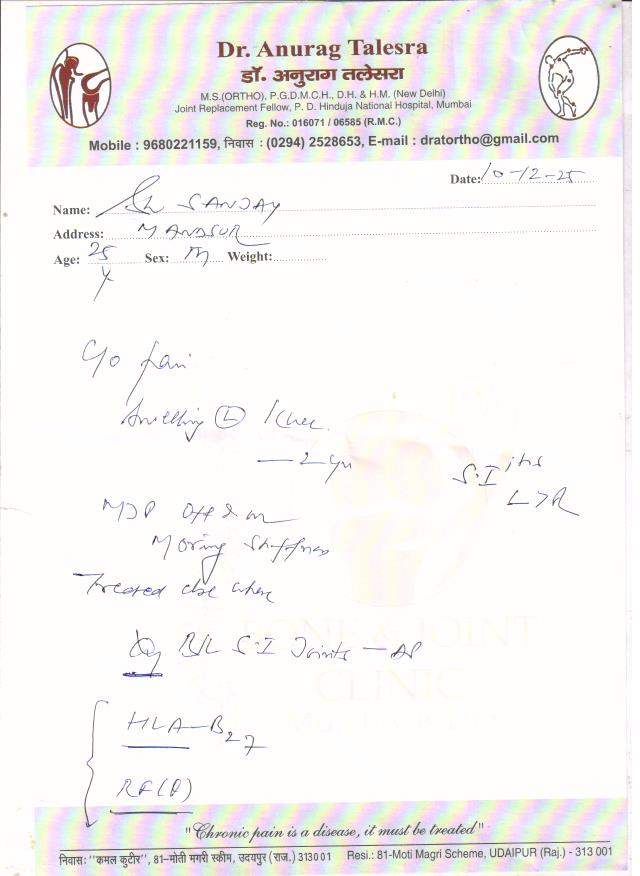 Dr. Anurag Talesra
डॉ. अनुराग तलेसरा
M.S.(ORTHO), P.G.D.M.C.H., D.H. & H.M. (New Delhi)
Joint Replacement Fellow, P. D. Hinduja National Hospital, Mumbai
Reg. No.: 016071 / 06585 (R.M.C.)
Mobile : 9680221159, निवास : (0294) 2528653, E-mail : dratortho@gmail.com
Date: 10-12-25
Name: Sh SANJAY
Address: MANDSUR
Age: 25 Y Sex: M Weight:
C/o Pain
Swelling (L) Knee
— 2 yr
S.I jts
L>R
off & on
Moring Stiffness
Treated else where
B/L S.I Joints — AP
HLA-B27
RF(Q)
BONE & JOINT
CLINIC
"Chronic pain is a disease, it must be treated"
निवास: "कमल कुटीर", 81-मोती मगरी स्कीम, उदयपुर (राज.) 313001 Resi.: 81-Moti Magri Scheme, UDAIPUR (Raj.) - 313 001